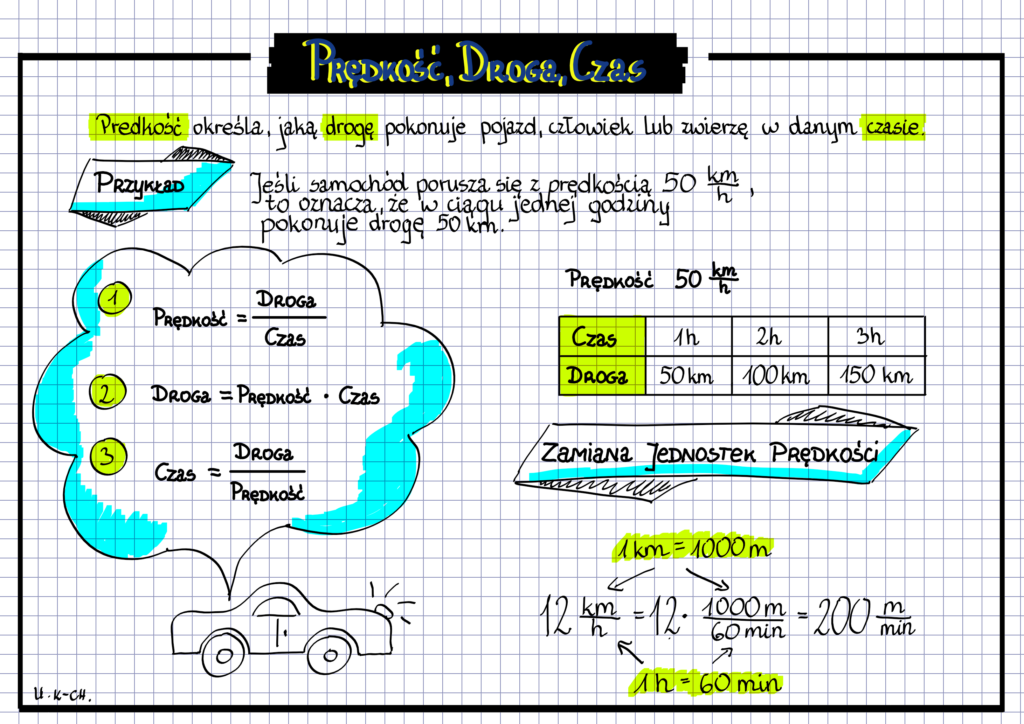 Prędkość, Droga, Czas
Predkość określa, jaką drogę pokonuje pojazd, człowiek lub zwierzę w danym czasie.
Przykład
Jeśli samochód porusza się z prędkością 50 km/h,
to oznacza, że w ciągu jednej godziny
pokonuje drogę 50 km.
1
Prędkość = Droga/Czas
2
Droga = Prędkość · Czas
3
Czas = Droga/Prędkość
Prędkość 50 km/h
Czas 1h 2h 3h
Droga 50 km 100 km 150 km
Zamiana Jednostek Prędkości
1 km = 1000 m
12 km/h = 12 · 1000 m/60 min = 200 m/min
1 h = 60 min
U. K-CH.